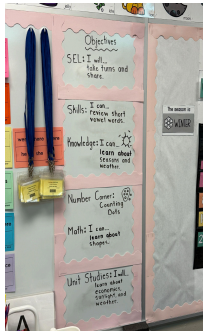 Objectives
SEL: I will...
take turns and
share.
Skills: I can...
review short
vowel words.
Knowledge: I can...
learn about
seasons and
weather.
Number Corner:
Counting
Dots
Math: I can...
learn about
shapes.
Unit Studies: I will...
learn about
economics,
sunlight, and
weather.
The season is
WINTER
A